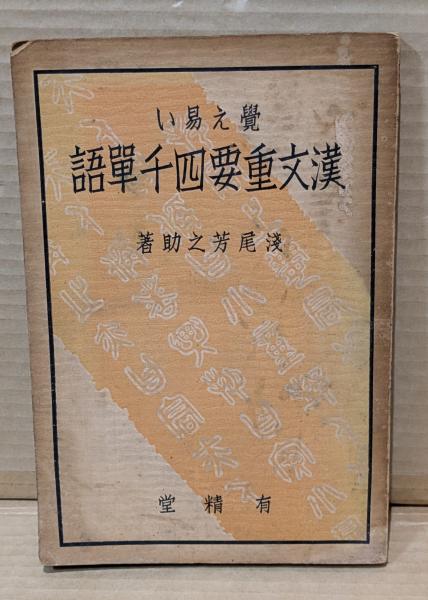 覺え易い
漢文重要四千單語
淺尾芳之助著
有精堂